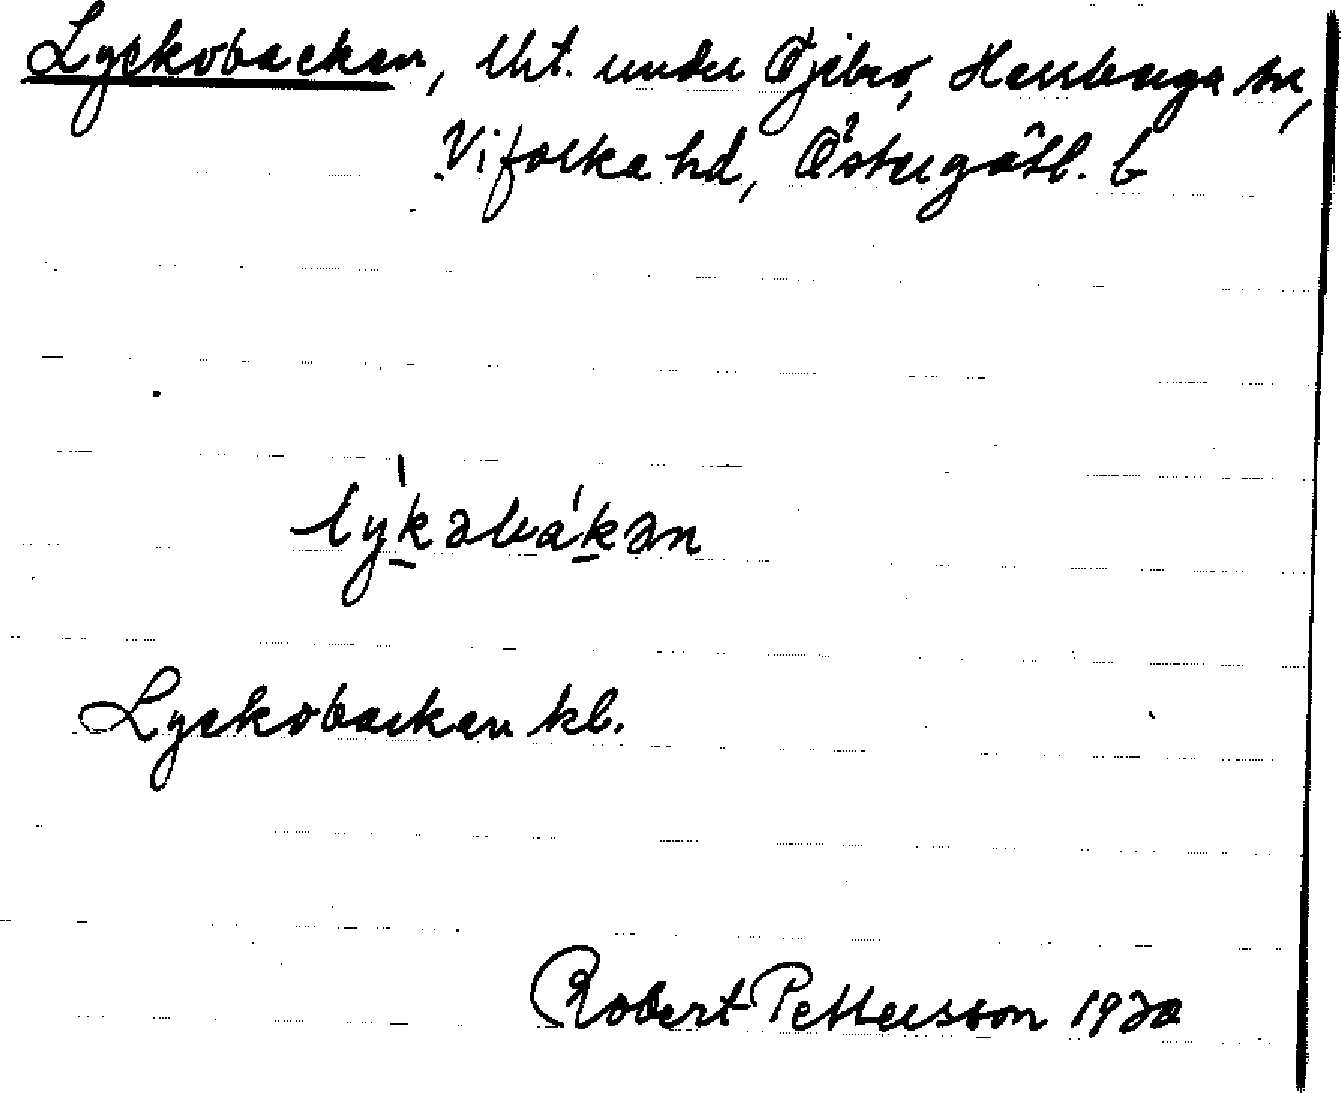 Lyckobacken, lht. under Öjebro, Herrberga sn,
Vifolka hd, Östergötl. l
lýkəbákən
Lyckobacken kl.
Robert Pettersson 1930